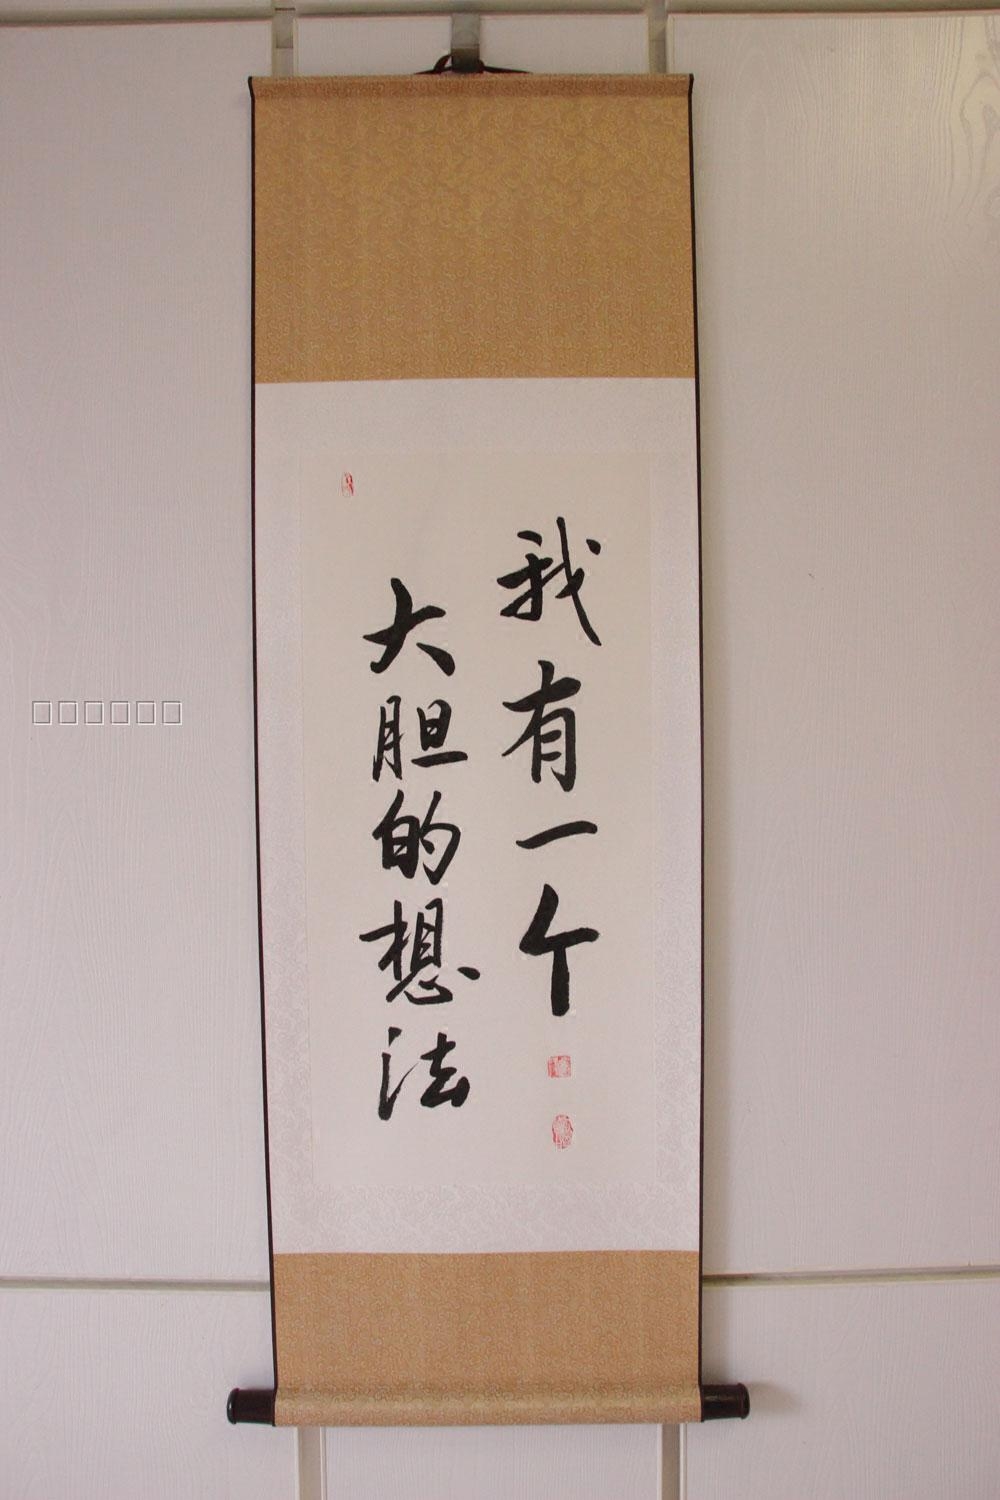 我有一个
大胆的想法